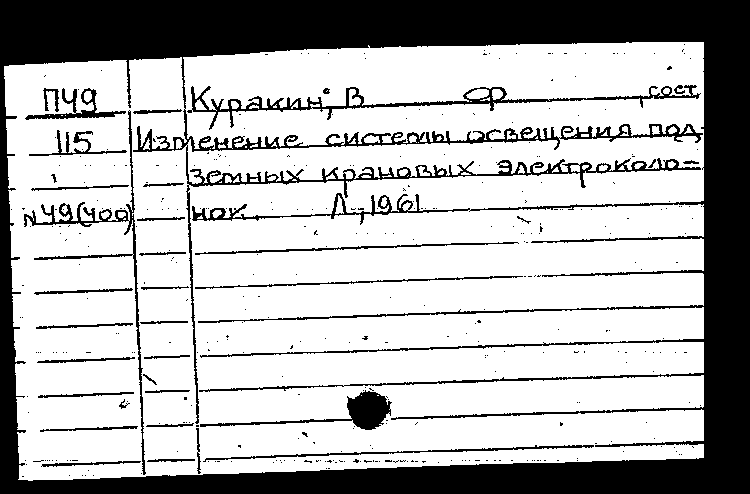 П49 Куракин, В Ф , сост.
115 Изменение системы освещения под-
земных крановых электроколо=
N49(400) нок. Л., 1961